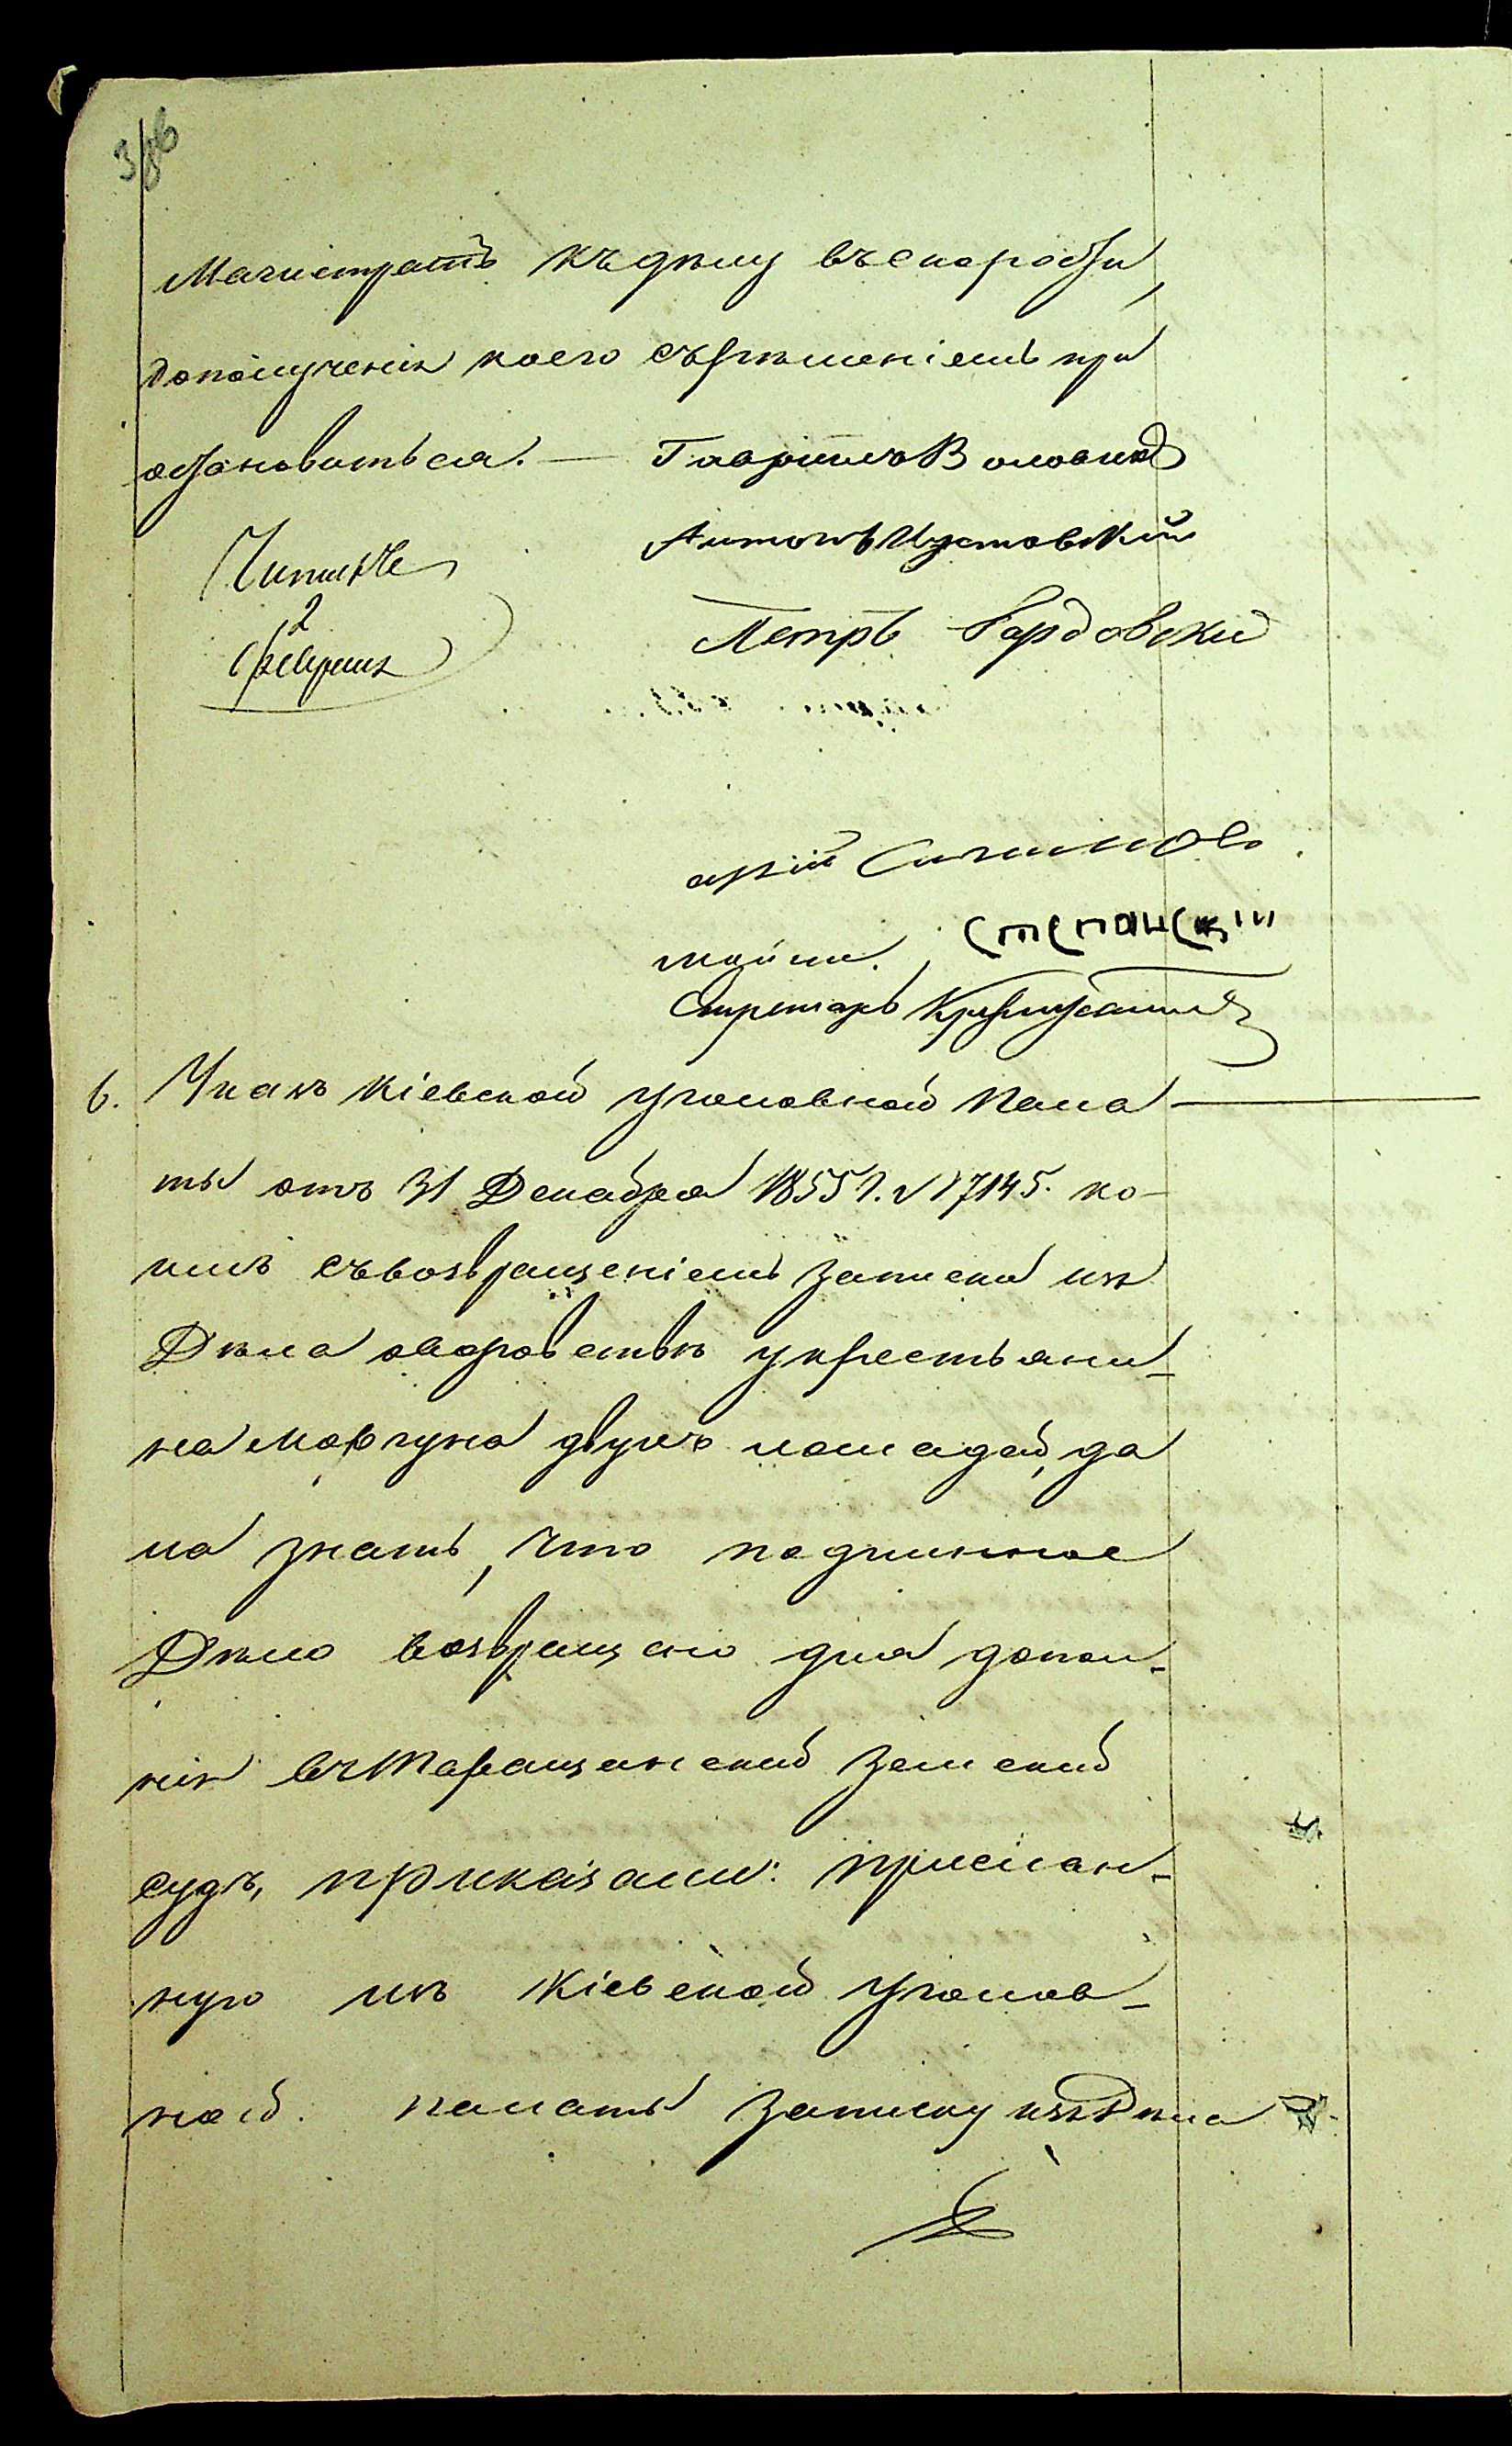 Магистратъ къ делу въ скорости,
до получения коего съ решениемъ при
остановиться. — Гавриило Воловик
Антонъ
Петръ Бардовски
2
февраля
арiй
Степанскiй
Секретарь
6. Указъ Кiевской Уголовной Пала
ты отъ 31 Декабря 1855 г. № 17145. ко-
имъ съ возвращенiемъ записки изъ
Дѣла о воровствѣ у крестьяни-
на Мовчуна двухъ лошадей, да
ла знать, что подлинное
Дѣло возвращено для допол-
нiя въ Таращанский земский
судъ, приказали: присланн-
ную изъ Кiевской Уголов-
ной палаты записку изъ Дѣла